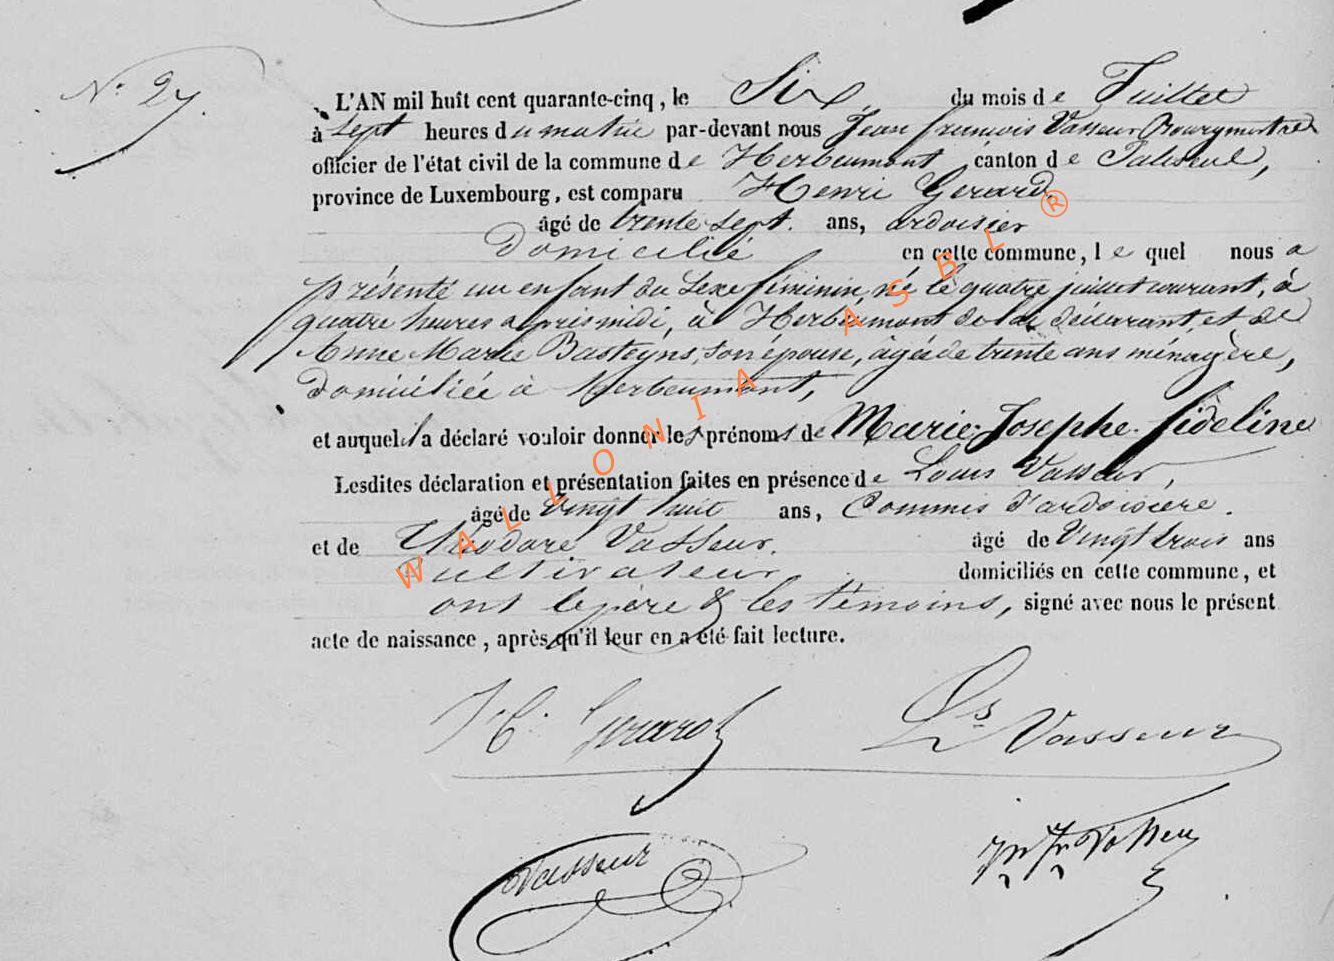 N.º 27.
L'AN mil huit cent quarante-cinq, le Six du mois de Juillet
à sept heures du matin par-devant nous Jean françois Vasseur Bourgmestre
officier de l'état civil de la commune de Herbeumont, canton de Paliseul,
province de Luxembourg, est comparu Henri Gerard,
âgé de trente sept. ans, ardoisier
Domicilié en cette commune, lequel nous a
présenté un enfant du sexe féminin, né le quatre juillet courant, à
quatre heures après midi, à Herbeumont de lui déclarant, et de
Anne Marie Basteyns, son épouse, âgée de trente ans ménagère,
domiciliée à Herbeumont,
et auquel il a déclaré vouloir donner les prénoms de Marie-Josephe-fideline
Lesdites déclaration et présentation faites en présence de Louis Vasseur,
âgé de vingt huit ans, Commis d'ardoisière.
et de Théodore Vasseur. âgé de Vingt trois ans
Cultivateur domiciliés en cette commune, et
ont le père & les témoins, signé avec nous le présent
acte de naissance, après qu'il leur en a été fait lecture.
H. Gerard Ls Vasseur
Vasseur Jn Fn Vasseur
WALLONIA ASBL ®